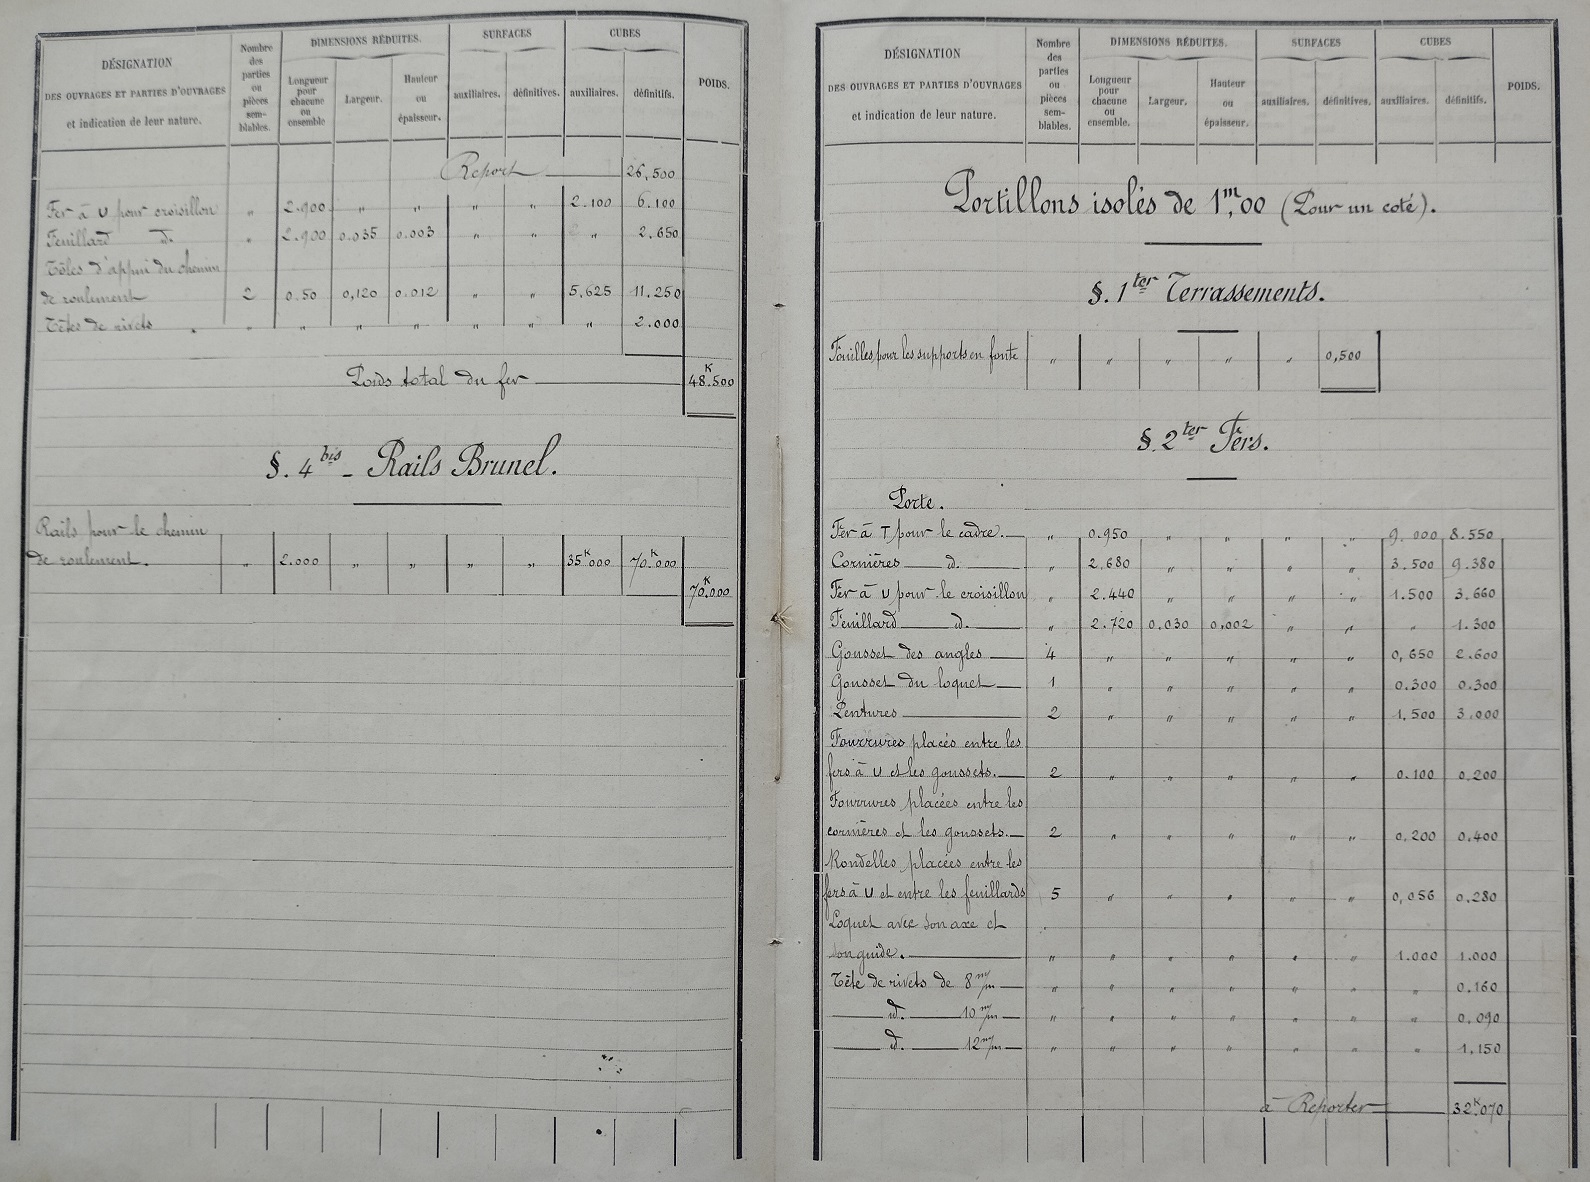 DÉSIGNATION
DES OUVRAGES ET PARTIES D'OUVRAGES
et indication de leur nature.
Nombre des parties ou pièces sem-blables.
DIMENSIONS RÉDUITES.
Longueur pour chacune ou ensemble
Largeur.
Hauteur ou épaisseur.
SURFACES
auxiliaires.
définitives.
CUBES
auxiliaires.
définitifs.
POIDS.
Report 26,500
Fer à U pour croisillon " 2.900 " " " " 2.100 6.100
Feuillard d. " 2.900 0.035 0.003 " " " 2.650
Tôles d'appui du chemin
de roulement 2 0.50 0,120 0.012 " " 5,625 11.250
Têtes de rivets . " " " " " " " 2.000
Poids total du fer 48.K500
§. 4 bis - Rails Brunel.
Rails pour le chemin
de roulement. " 2.000 " " " " 35K000 70K000
70K000
DÉSIGNATION
DES OUVRAGES ET PARTIES D'OUVRAGES
et indication de leur nature.
Nombre des parties ou pièces sem-blables.
DIMENSIONS RÉDUITES.
Longueur pour chacune ou ensemble.
Largeur.
Hauteur ou épaisseur.
SURFACES
auxiliaires.
définitives.
CUBES
auxiliaires.
définitifs.
POIDS.
Portillons isolés de 1m,00 (Pour un coté).
§. 1ter Terrassements.
Fouilles pour les supports en fonte " " " " " 0,500
§. 2ter Fers.
Porte.
Fer à T pour le cadre. " 0.950 " " " " 9.000 8.550
Cornières d. " 2.680 " " " " 3.500 9.380
Fer à U pour le croisillon " 2.440 " " " " 1.500 3.660
Feuillard d. " 2.720 0.030 0,002 " " " 1.300
Gousset des angles 4 " " " " " 0,650 2.600
Gousset du loquet 1 " " " " " 0.300 0.300
Pentures 2 " " " " " 1,500 3.000
Fourrures placés entre les
fers à U et les goussets. 2 " " " " " 0.100 0,200
Fourrures placées entre les
cornières et les goussets. 2 " " " " " 0,200 0.400
Rondelles placées entre les
fers à U et entre les feuillards 5 " " " " " 0,056 0.280
Loquet avec son axe et
son guide. " " " " " " 1.000 1.000
Tête de rivets de 8 m/m " " " " " " " 0.160
d. 10 m/m " " " " " " " 0,090
d. 12 m/m " " " " " " " 1,150
à Reporter 32K070